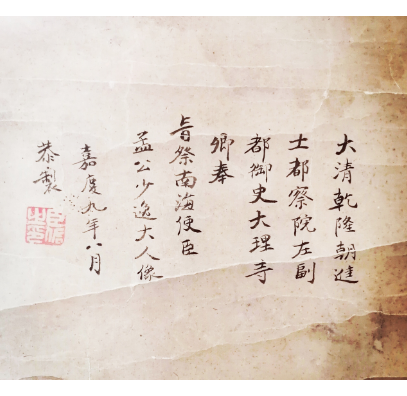 大清乾隆朝進
士都察院左副
都御史大理寺
卿奉
旨祭南海使臣
孟公少逸大人像
嘉慶九年八月
恭製